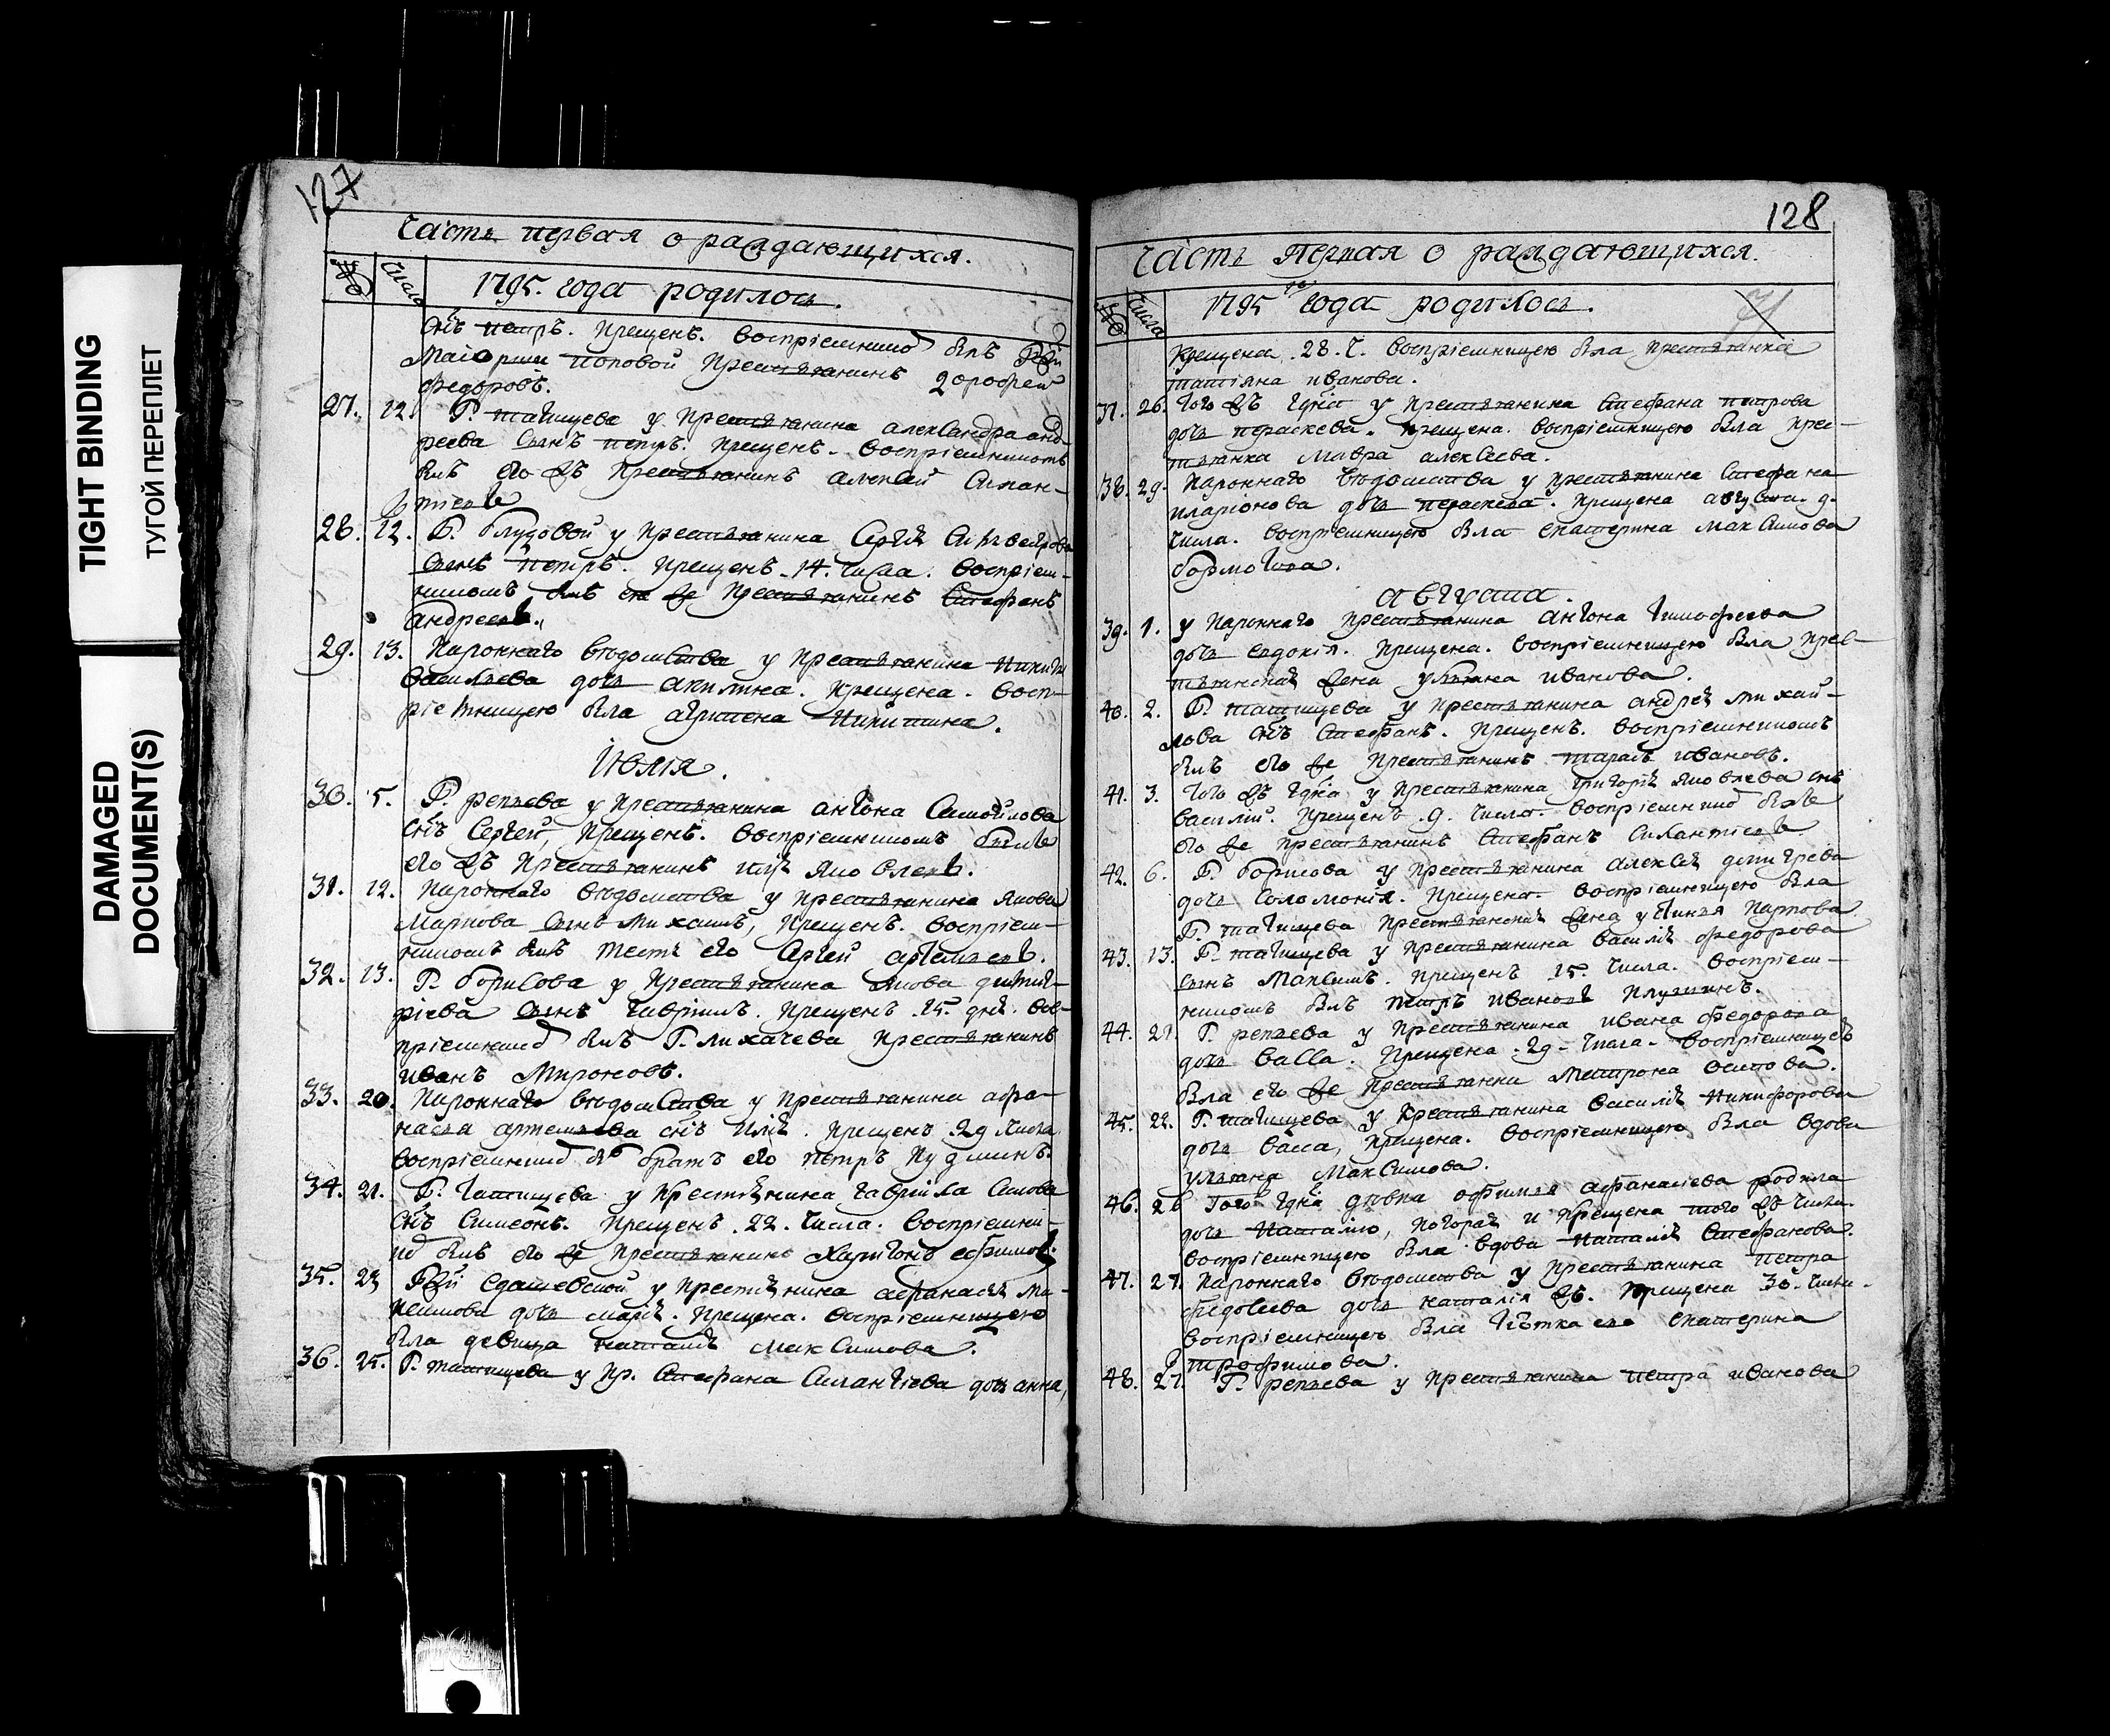 TIGHT BINDING
ТУГОЙ ПЕРЕПЛЕТ
DAMAGED
DOCUMENT(S)
127
Часть первая о раждающихся.
Числа
1795. года родилось.
снъ петръ. крещенъ. воспріемнико былъ
Маіорши поповой крестьянинъ дорофей
федоровъ.
27. 12. Г. татищева у крестьянина александра анд-
реева сынъ петръ. крещенъ. воспріемникомъ
былъ его жъ крестьянинъ алексей силан-
тіевъ
28. 12. Г. блудовой у крестьянина Сергѣя
сынъ петръ. крещенъ. 14. числа. воспріем-
никомъ былъ ея же крестьянинъ Стефанъ
андреевъ.
29. 13. Икононаго
васильева дочь акилина. крещена. восп-
ріемницею была агрипена никитина.
Июля.
30. 5. Г. репьева у крестьянина антона Самойлова
снъ Сергей, крещенъ. воспріемникомъ былъ
его жъ крестьянинъ илья яковлевъ.
31. 12. вѣдомства у крестьянина якова
Маркова сынъ михаилъ, крещенъ. воспріем-
никомъ былъ тесть его Сергей артемьевъ.
32. 13. Г. борисова у крестьянина якова дмит-
ріева сынъ гавріилъ. крещенъ 15. дня. вос-
пріемнико былъ Г. лихачева крестьянинъ
иванъ Мироновъ.
33. 20. вѣдомства у крестьянина афа-
насья артемьева снъ илія. крещенъ 29 числа
воспріемнико бы братъ его петръ
34. 21. Г. татищева у крестьянина гавриила
снъ Симеонъ. крещенъ. 22. числа. воспріемни-
ко былъ его же крестьянинъ харитонъ ефимовъ.
35. 23 у крестьянина афанасья ма-
ксимова дочь марія. крещена. воспріемницею
была девица наталія максимова.
36. 25. Г. татищева у кр. Стефана Силантіева дочь анна,
128
Часть первая о раждающихся.
Числа
1795 го года родилось.
71
крещена. 28. ч. воспріемницею была крестьянка
татіяна иванова.
37. 26. того жъ гдна у крестьянина Стефана петрова
дочь параскева. крещена. воспріемницею была крес-
тьянка мавра алексеева.
38. 29. вѣдомства у крестьянина Стефана
иларіонова дочь параскева. крещена августа. 9.
числа. воспріемницею была екатерина максимова
августа.
39. 1. у крестьянина антона тимофеева
дочь евдокія. крещена. воспріемницею была крес-
тьянская жена ульяна иванова.
40. 2. Г. татищева у крестьянина андрея михай-
лова снъ Стефанъ. крещенъ. воспріемникомъ
былъ его же крестьянинъ тарасъ ивановъ.
41. 3. того жъ гдна у крестьянина григорія яковлева снъ
василій. крещенъ. 9. числа. воспріемнико былъ
его же крестьянинъ Стефанъ Силантіевъ
42. 6. Г. борисова у крестьянина алексѣя дмитрева
дочь Соломонія. крещена. воспріемницею была
Г. татищева крестьянская жена карпова
43. 13. Г. татищева у крестьянина василія федорова
сынъ Максимъ. крещенъ 15. числа. воспріем-
никомъ былъ петръ ивановъ
44. 21. Г. репьева у крестьянина ивана федорова
дочь васса. крещена. 29 - числа. воспріемницею
была его же крестьянка матрона осипова.
45. 22. Г. татищева у крестьянина василія никифорова
дочь васса, крещена. воспріемницею была вдова
ульяна Максимова.
46. 26 того гдна девка офимья афанасіева родила
дочь наталію, которая и крещена того жъ числа.
воспріемницею была вдова наталія Стефанова.
47. 27. вѣдомства у крестьянина петра
федосеева дочь наталія жъ. крещена 30. числа.
воспріемницею была тѣтка ево екатерина
трофимова.
48. 27. Г. репьева у крестьянина петра иванова